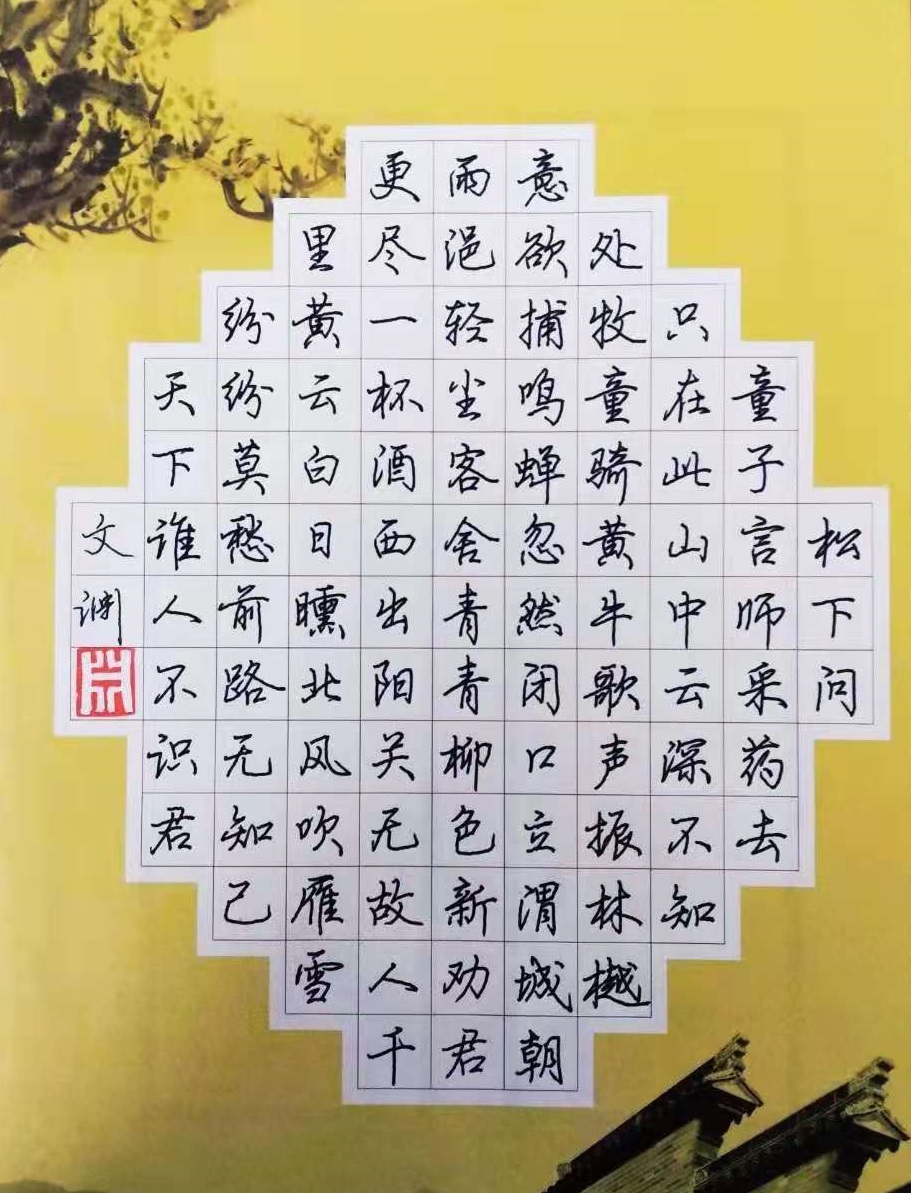 松下问
童子言师采药去
只在此山中云深不知
处牧童骑黄牛歌声振林樾
意欲捕鸣蝉忽然闭口立渭城朝
雨浥轻尘客舍青青柳色新劝君
更尽一杯酒西出阳关无故人千
里黄云白日曛北风吹雁雪
纷纷莫愁前路无知己
天下谁人不识君
文渊